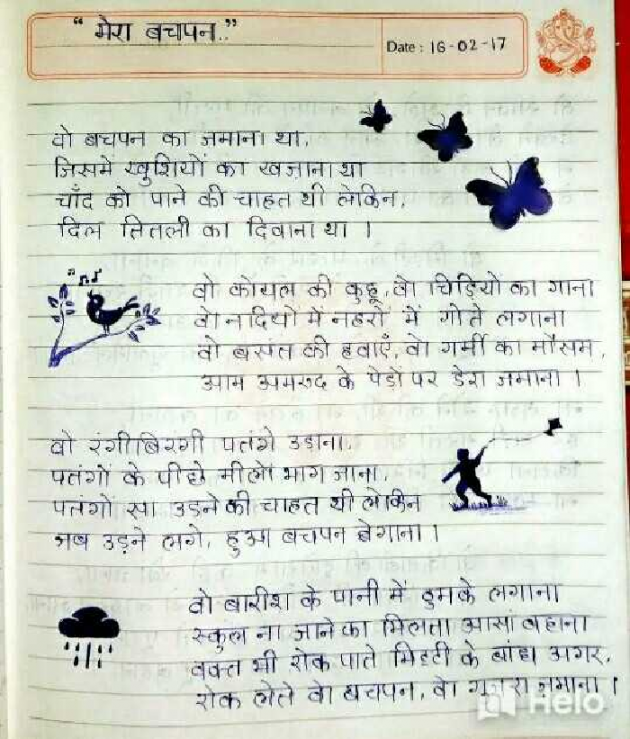 “ मेरा बचपन.. ”
Date : 16-02-17
वो बचपन का जमाना था,
जिसमें खुशियों का खज़ाना था
चाँद को पाने की चाहत थी लेकिन,
दिल तितली का दिवाना था ।
वो कोयल की कुहू, वो चिड़ियों का गाना
वो नदियों में नहरों में गोते लगाना
वो बसंत की हवाएँ, वो गर्मी का मौसम,
आम अमरुद के पेड़ों पर डेरा जमाना ।
वो रंगीबिरंगी पतंगे उड़ाना,
पतंगों के पीछे मीलों भाग जाना,
पतंगों सा उड़ने की चाहत थी लेकिन
जब उड़ने लगे, हुआ बचपन बेगाना ।
वो बारीश के पानी में ठुमके लगाना
स्कुल ना जाने का मिलता आसां बहाना
वक्त भी रोक पाते मिट्टी के बांध अगर,
रोक लेते वो बचपन, वो गुजरा जमाना ।
Helo